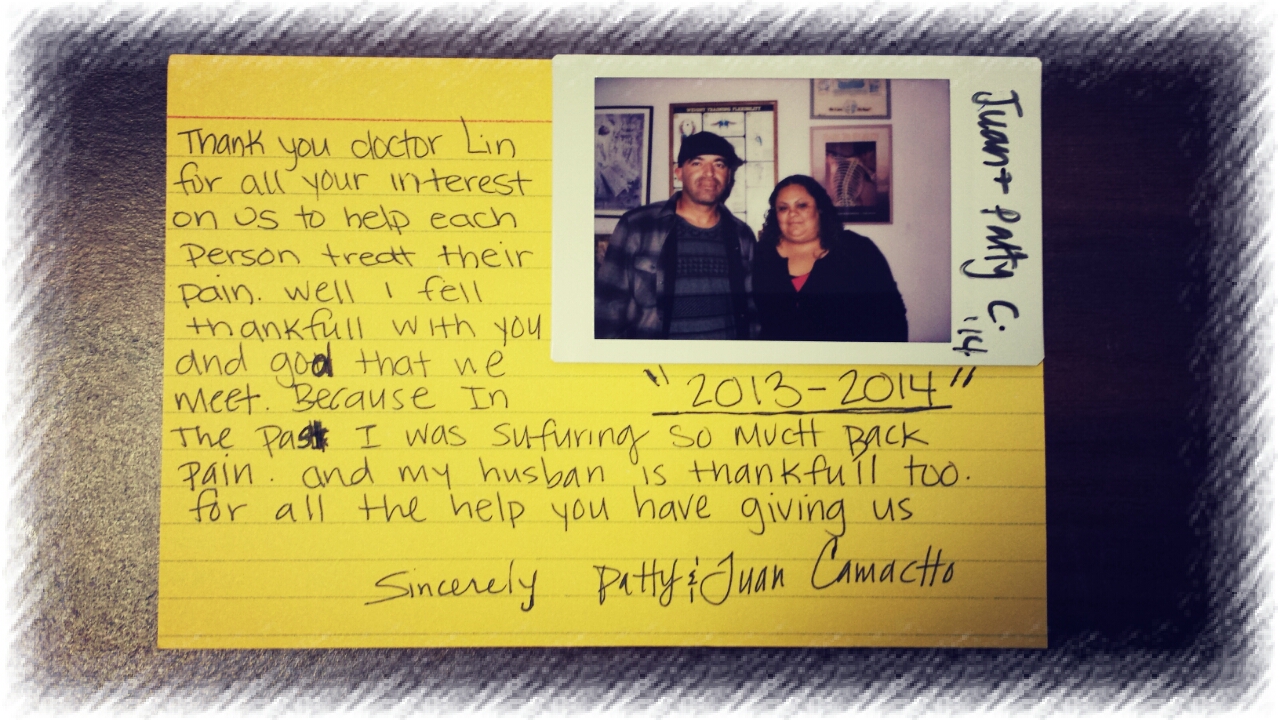 Thank you doctor Lin
for all your interest
on us to help each
Person treat their
pain. well i fell
thankfull with you
and god that we
meet. Because In
The past I was sufuring so much Back
Pain. and my husban is thankfull too.
for all the help you have giving us
Sincerely Patty & Juan Camacho
"2013-2014"
Juan + Patty C. '14
WEIGHT TRAINING FLEXIBILITY